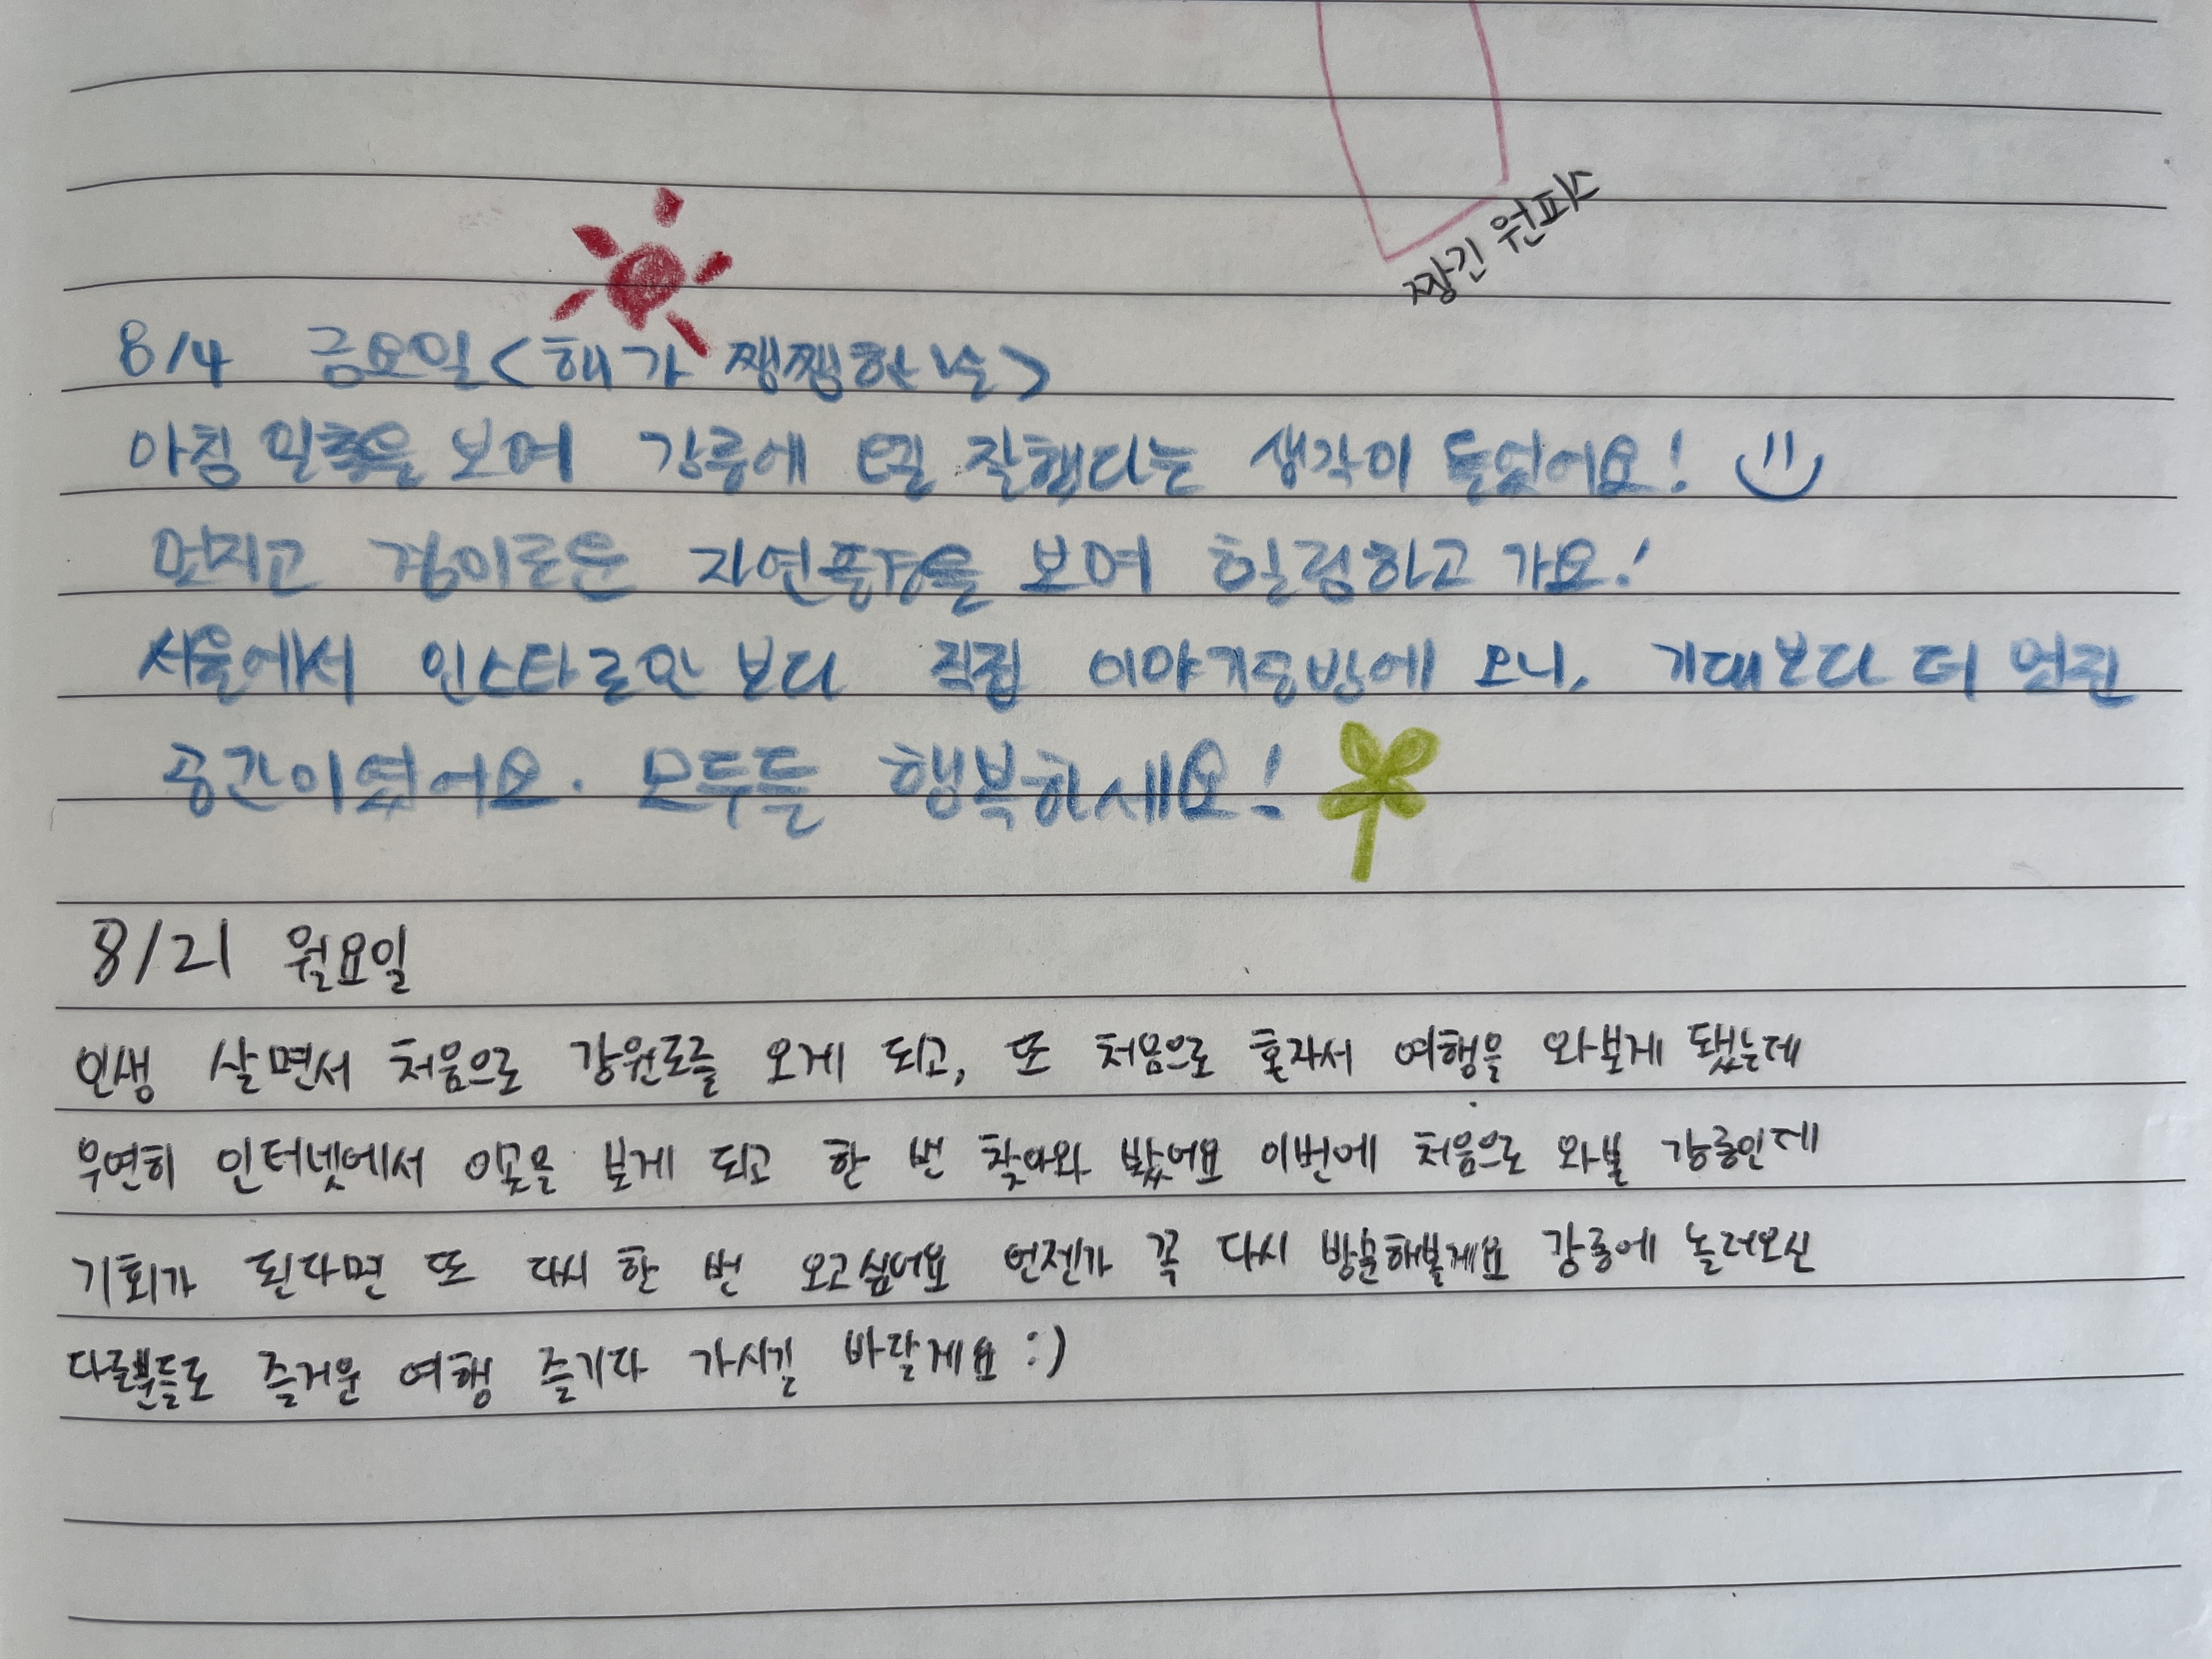 짱긴 원피스
8/4 금요일 <해가 쨍쨍한 날>
아침 일출을 보며 강릉에 오길 잘했다는 생각이 들었어요!
멋지고 경이로운 자연풍경을 보며 힐링하고 가요!
서울에서 인스타로만 보다 직접 이야기동방에 오니, 기대보다 더 멋진
공간이였어요. 모두들 행복하세요!
8/21 월요일
인생 살면서 처음으로 강원도를 오게 되고, 또 처음으로 혼자서 여행을 와보게 됐는데
우연히 인터넷에서 이곳을 보게 되고 한 번 찾아와 봤어요 이번에 처음으로 와본 강릉인데
기회가 된다면 또 다시 한 번 오고싶어요 언젠가 꼭 다시 방문해볼게요 강릉에 놀러오신
다른분들도 즐거운 여행 즐기다 가시길 바랄게요 :)